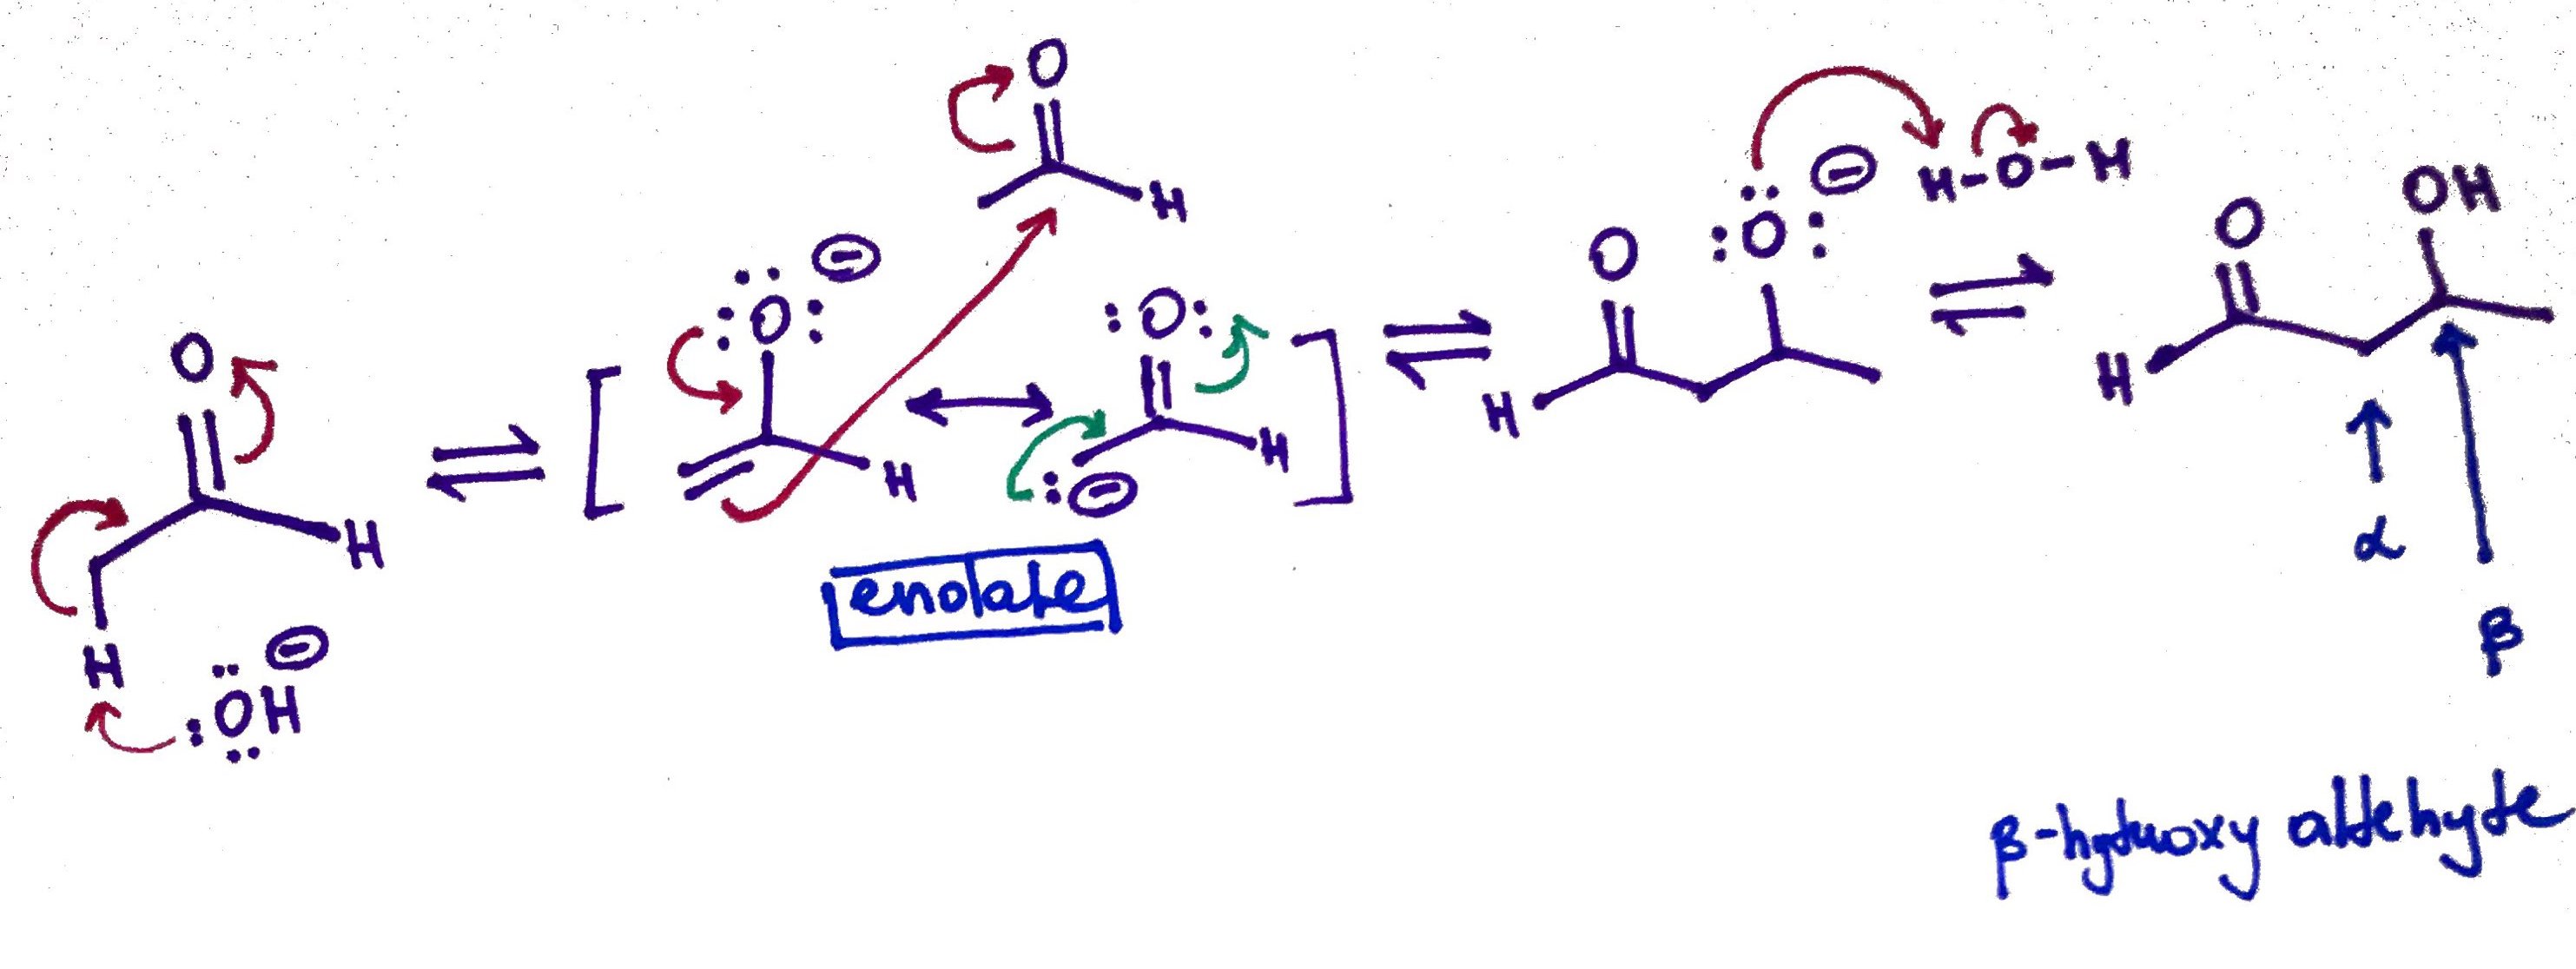 O
H
O
H
⊖
:Ö:
H
:O:
H
:⊖
enolate
H
:ÖH ⊖
O
H
:Ö: ⊖
H-O-H
O
OH
H
α
β
β-hydroxy aldehyde